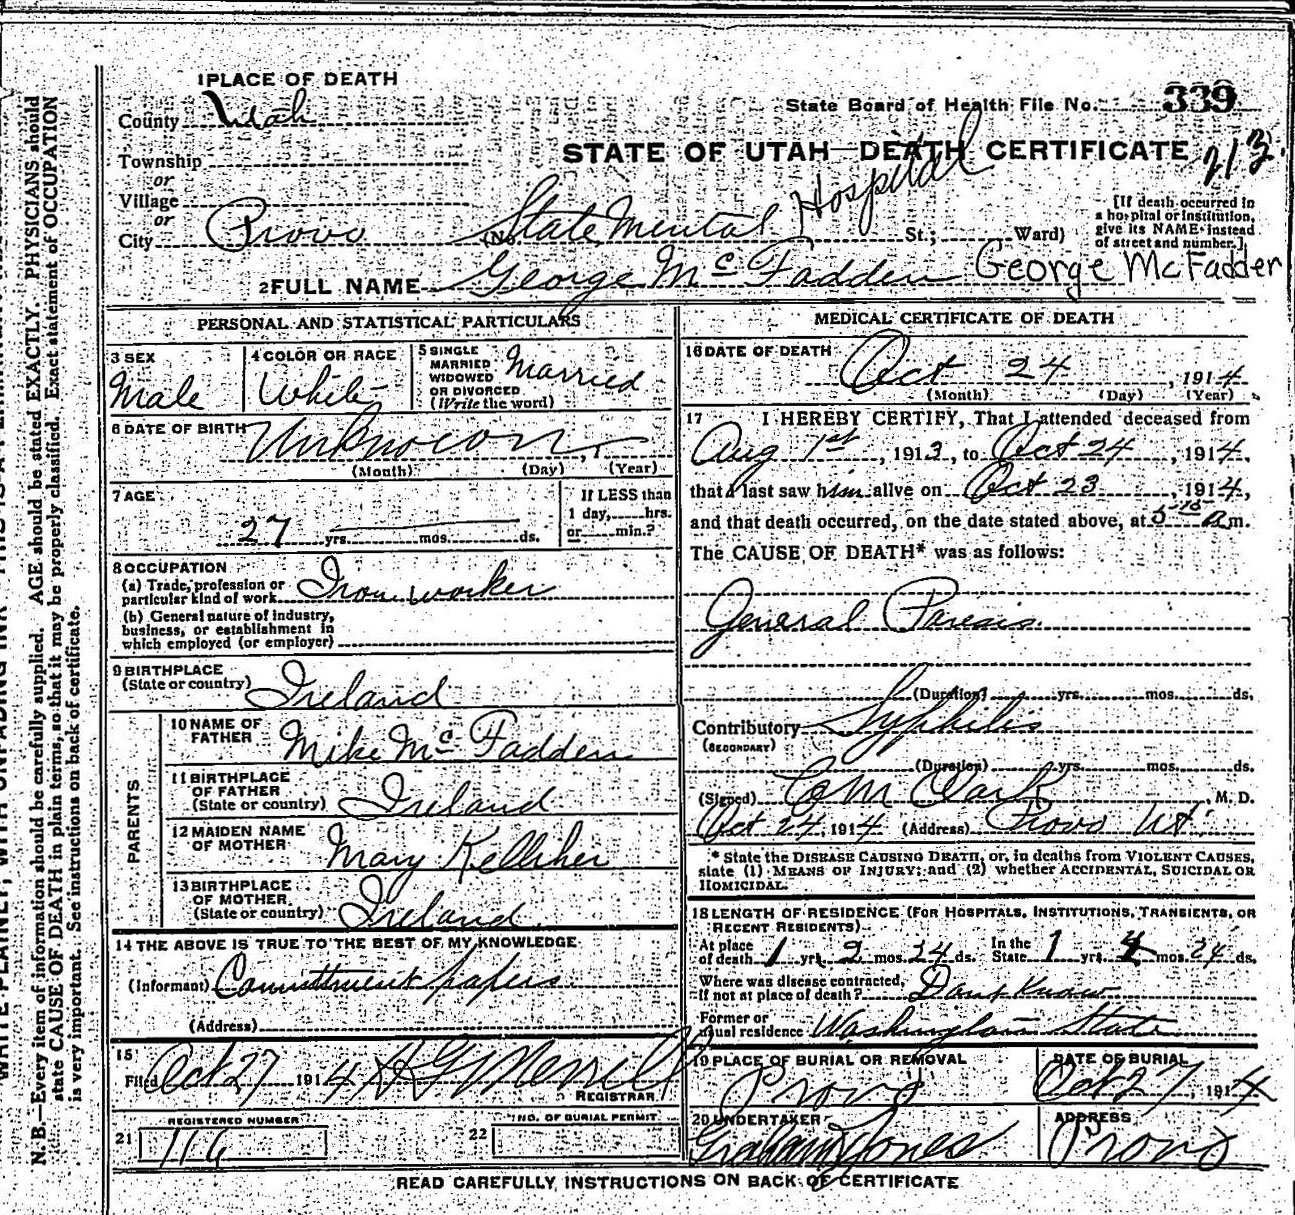 1 PLACE OF DEATH
County Utah
Township
or
Village
or
City Provo
State Board of Health File No. 339
STATE OF UTAH—DEATH CERTIFICATE 213.
(No. State Mental Hospital St.; Ward)
[If death occurred in
a hospital or institution,
give its NAME instead
of street and number.]
2 FULL NAME George McFadden George McFadden
PERSONAL AND STATISTICAL PARTICULARS
3 SEX
Male
4 COLOR OR RACE
White
5 SINGLE
MARRIED
WIDOWED
OR DIVORCED
(Write the word)
Married
6 DATE OF BIRTH Unknown
(Month) (Day) (Year)
7 AGE
27 yrs. mos. ds.
If LESS than
1 day, hrs.
or min.?
8 OCCUPATION
(a) Trade, profession or
particular kind of work Iron worker
(b) General nature of industry,
business, or establishment in
which employed (or employer)
9 BIRTHPLACE
(State or country) Ireland
PARENTS
10 NAME OF
FATHER Mike McFadden
11 BIRTHPLACE
OF FATHER
(State or country) Ireland
12 MAIDEN NAME
OF MOTHER Mary Kelliher
13 BIRTHPLACE
OF MOTHER
(State or country) Ireland
14 THE ABOVE IS TRUE TO THE BEST OF MY KNOWLEDGE
(Informant) Committment papers
(Address)
15
Filed Oct 27 1914 H G Merrill
REGISTRAR
REGISTERED NUMBER
21 116
NO. OF BURIAL PERMIT
22
MEDICAL CERTIFICATE OF DEATH
16 DATE OF DEATH
Oct 24, 1914
(Month) (Day) (Year)
17 I HEREBY CERTIFY, That I attended deceased from
Aug 1st, 1913, to Oct 24, 1914,
that I last saw him alive on Oct 23, 1914,
and that death occurred, on the date stated above, at 5-15 a m.
The CAUSE OF DEATH* was as follows:
General Paresis
(Duration) yrs. mos. ds.
Contributory Syphilis
(SECONDARY)
(Duration) yrs. mos. ds.
(Signed) C M Clark, M. D.
Oct 24, 1914 (Address) Provo Ut.
* State the DISEASE CAUSING DEATH, or, in deaths from VIOLENT CAUSES,
state (1) MEANS OF INJURY; and (2) whether ACCIDENTAL, SUICIDAL OR
HOMICIDAL.
18 LENGTH OF RESIDENCE (FOR HOSPITALS, INSTITUTIONS, TRANSIENTS, OR
RECENT RESIDENTS)
At place
of death 1 yr. 2 mos. 24 ds. In the
State 1 yrs. 4 mos. 24 ds.
Where was disease contracted,
If not at place of death? Dont Know
Former or
usual residence Washington State
19 PLACE OF BURIAL OR REMOVAL
Provo
DATE OF BURIAL
Oct 27, 1914
20 UNDERTAKER
Graham Jones
ADDRESS
Provo
READ CAREFULLY INSTRUCTIONS ON BACK OF CERTIFICATE
N. B.—Every item of information should be carefully supplied. AGE should be stated EXACTLY. PHYSICIANS should
state CAUSE OF DEATH in plain terms, so that it may be properly classified. Exact statement of OCCUPATION
is very important. See instructions on back of certificate.